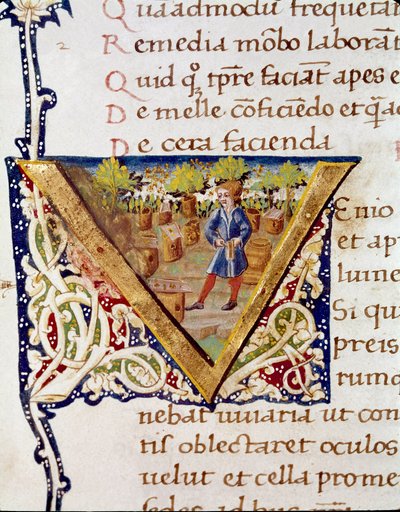 Quaadmodū frequētan
Remedia mōbo laborāt
Quid qꝫ tp̄re faciāt apes e
De melle cōficiēdo et
De cera facienda
VEnio
et ap
Si qui
preis
rumq
nebat uiuaria ut con
tis oblectaret oculos
uelut et cella prome
sedes ad huc